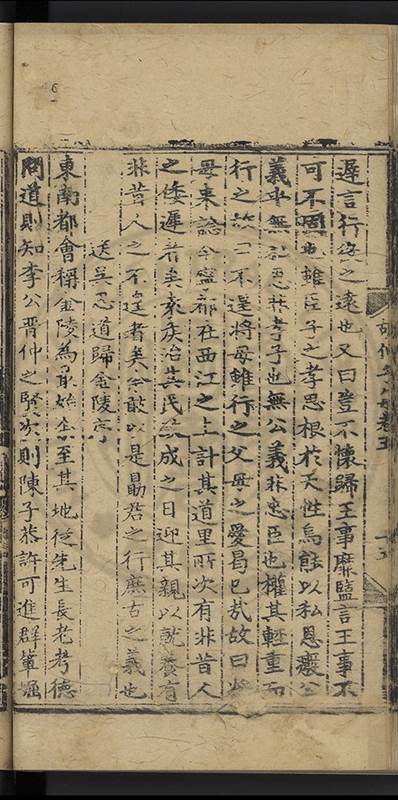 遲言行委之遠也又曰豈不懷歸王事靡盬言王事不
可不固也雖臣子之孝思根於天性烏能以私恩廢公
義乎無私恩非孝子也無公義非忠臣也權其輕重而
行之故曰不遑將母雖行之父母之愛曷已哉故曰將
母來諗今寧都在西江之上計其道里所次有非昔人
之倭遲者矣素侯治其民政成之日迎其親以就養有
非昔人之不遑者矣今敢以是勗君之行庶古之義也
送吳思道歸金陵序
東南都會稱金陵為最始余至其地從先生長老考德
問道則知李公晋仲之賢次則陳子恭許可進群輩崛
胡仲子 卷五
十五